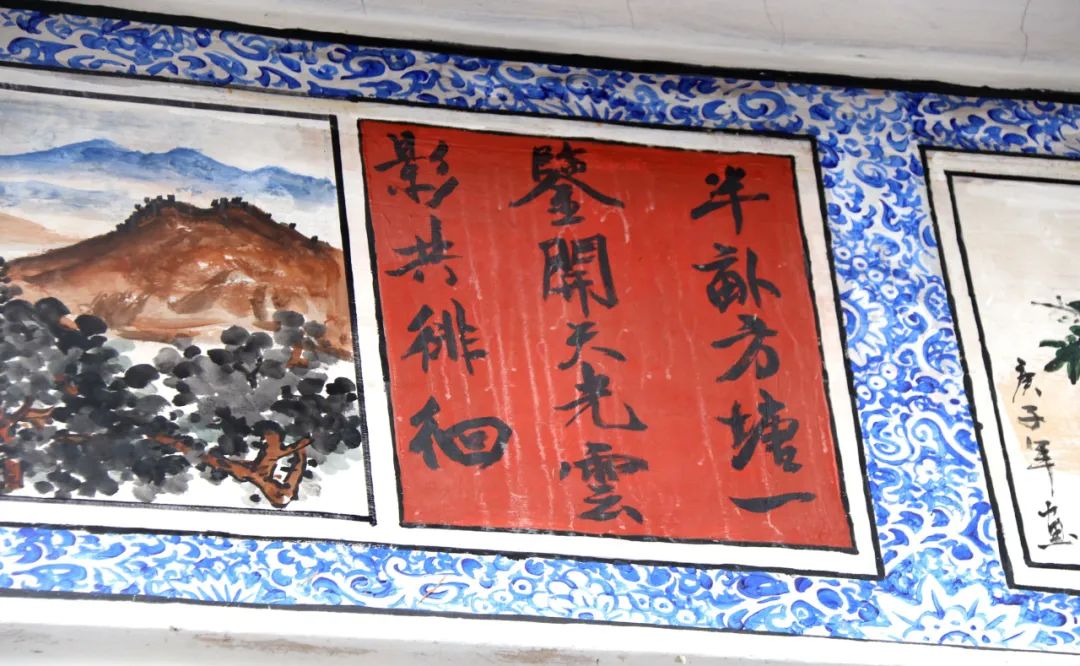 半畝方塘一
鑒開天光雲
影共徘徊
庚子年畫